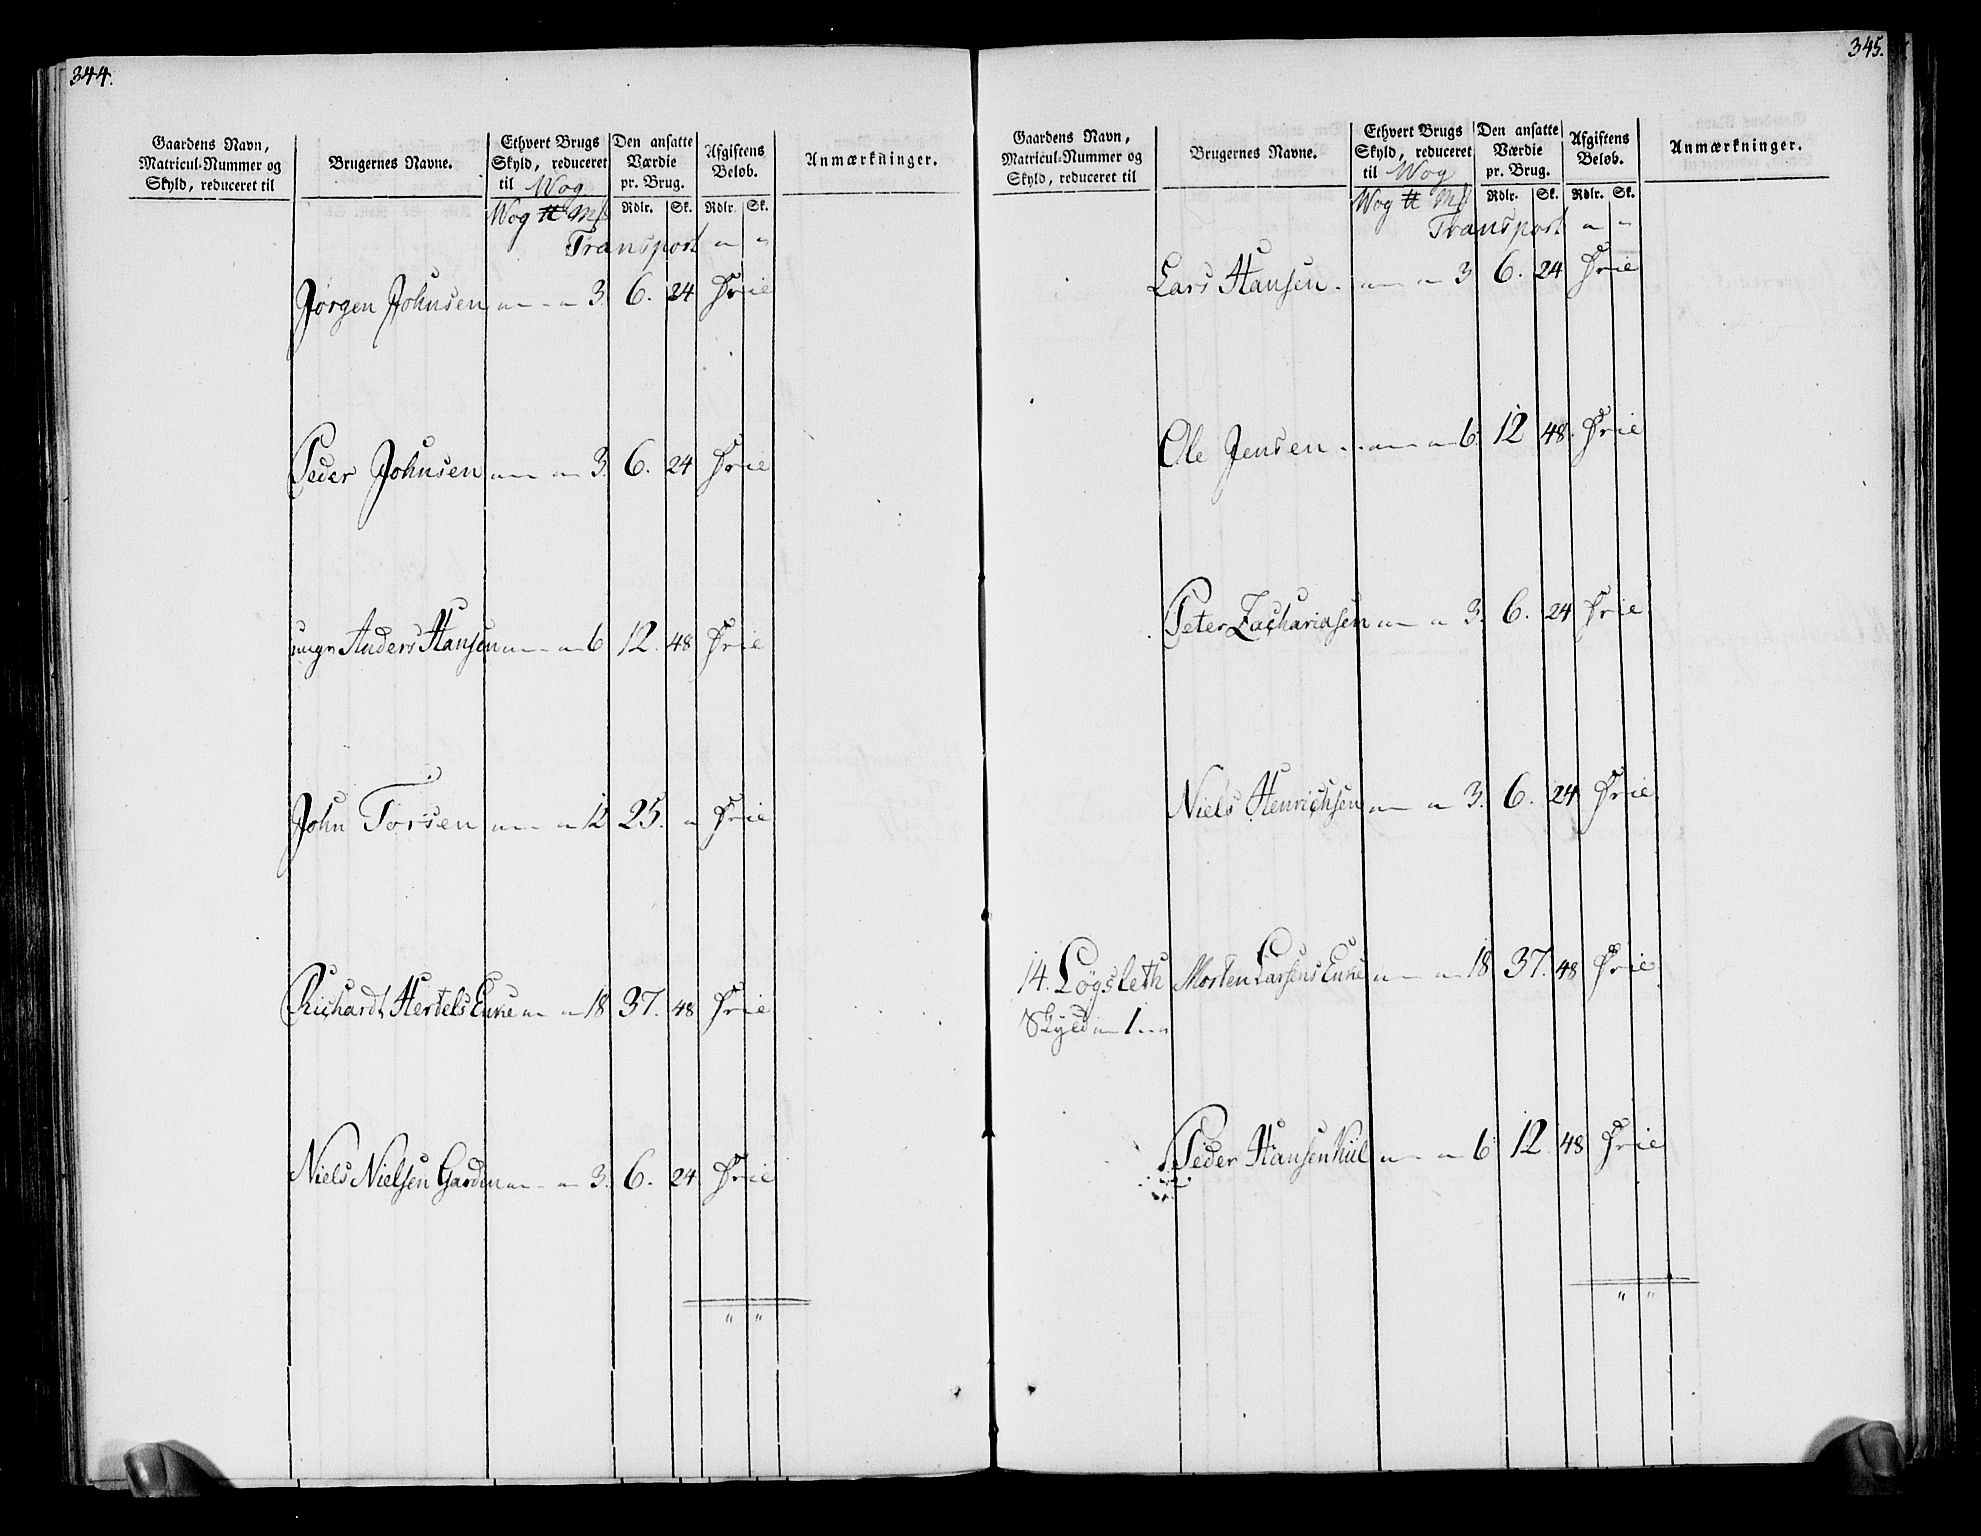 344.
Gaardens Navn, Matricul-Nummer og Skyld, reduceret til
Brugernes Navne.
Ethvert Brugs Skyld, reduceret til Wog
Den ansatte Værdie pr. Brug.
Afgiftens Beløb.
Anmærkninger.
Wog ℔ Mk Rdlr. Sk. Rdlr. Sk.
Transport " "
Jørgen Johnsen " " 3. 6. 24 Frie
Peder Johnsen " " 3. 6. 24 Frie
unge Anders Hansen " " 6 12. 48 Frie
John Torsen " " 12 25. " Frie
Richardt Hertels Enke " " 18 37. 48 Frie
Niels Nielsen Gardin " " 3. 6. 24 Frie
" "
345.
Gaardens Navn, Matricul-Nummer og Skyld, reduceret til
Brugernes Navne.
Ethvert Brugs Skyld, reduceret til Wog
Den ansatte Værdie pr. Brug.
Afgiftens Beløb.
Anmærkninger.
Wog ℔ Mk Rdlr. Sk. Rdlr. Sk.
Transport " "
Lars Hansen. " " 3 6. 24 Frie
Ole Jensen " " 6. 12 48. Frie
Peter Zachariasen " " 3. 6. 24 Frie
Niels Henrichsen " " 3. 6. 24 Frie
14. Løgsleth Morten Larsens Enke " " 18 37. 48 Frie
Skyld " 1 "
Peder Hansen Kiil " " 6 12. 48 Frie
" "